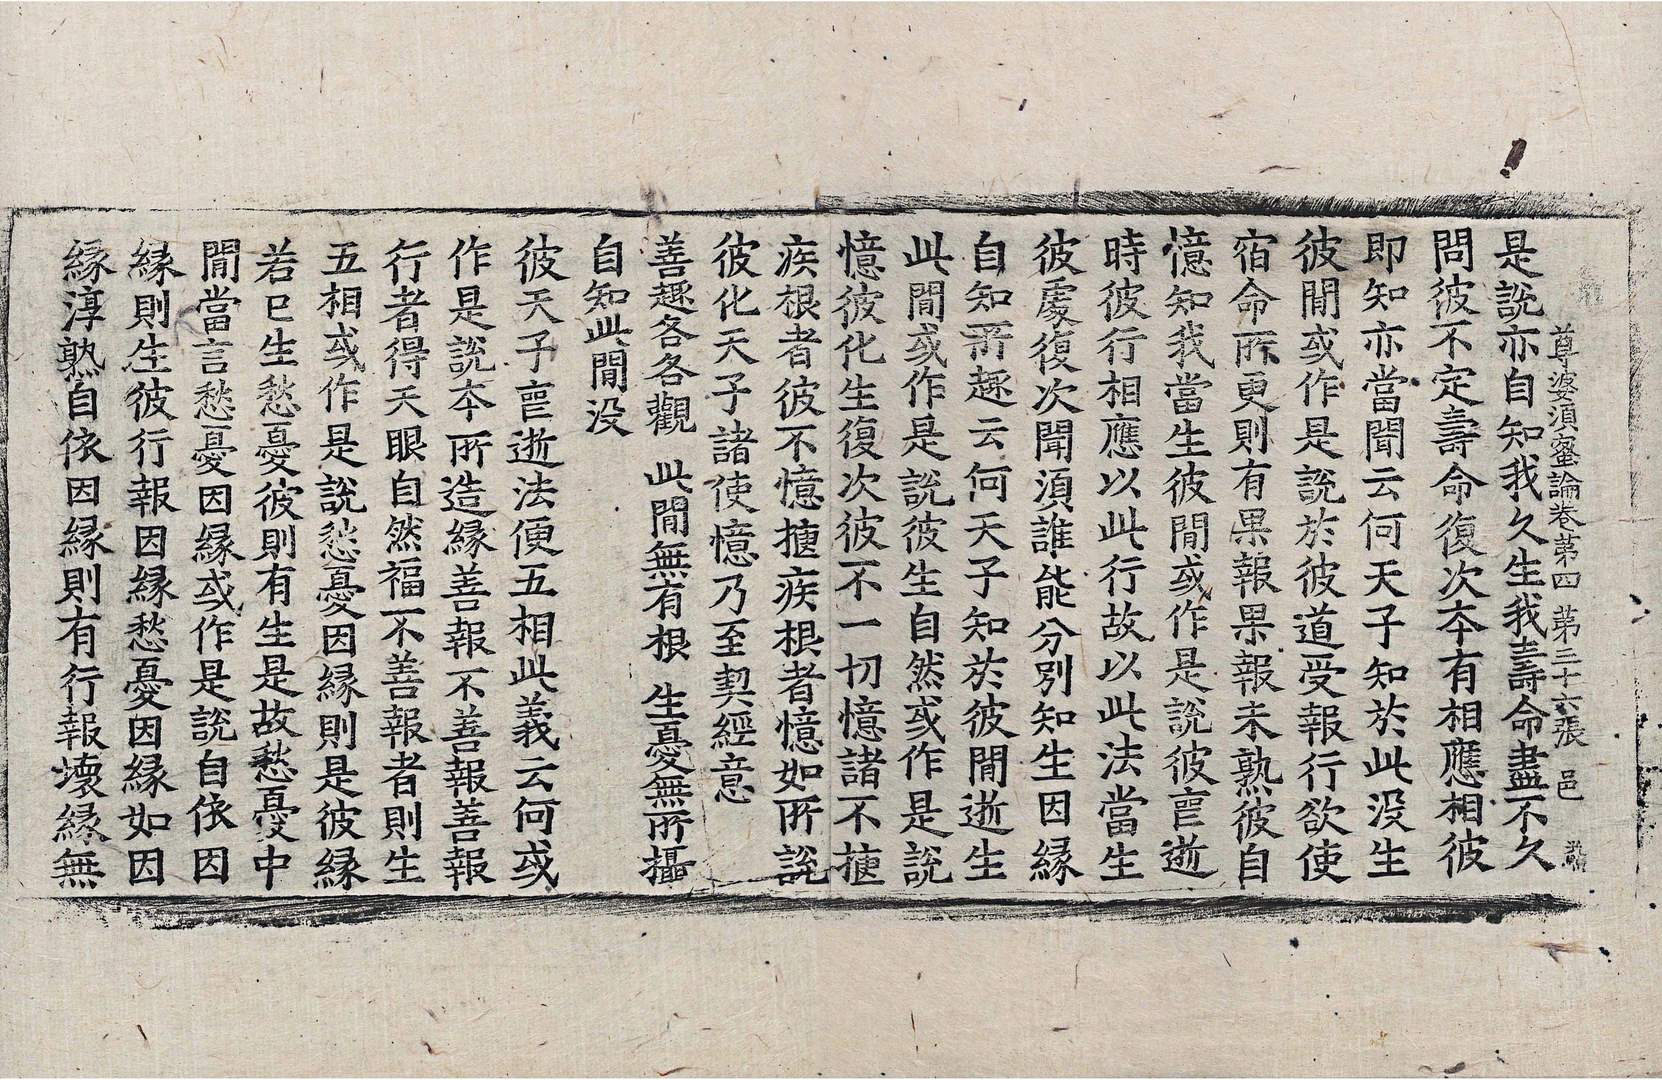 尊婆須蜜論卷第四 第三十六張 邑
是說亦自知我久生我壽命盡不久
問彼不定壽命復次本有相應相彼
即知亦當聞云何天子知於此没生
彼間或作是說於彼道受報行欲使
宿命所更則有果報果報未熟彼自
憶知我當生彼間或作是說彼亶逝
時彼行相應以此行故以此法當生
彼處復次聞須誰能分別知生因縁
自知所趣云何天子知於彼間逝生
此間或作是說彼生自然或作是說
憶彼化生復次彼不一切憶諸不㨖
疾根者彼不憶㨖疾根者憶如所說
彼化天子諸使憶乃至契經意
善趣各各觀 此間無有根 生憂無所攝
自知此間没
彼天子亶逝法便五相此義云何或
作是說本所造縁善報不善報善報
行者得天眼自然福不善報者則生
五相或作是說愁憂因縁則是彼縁
若已生愁憂彼則有生是故愁憂中
間當言愁憂因縁或作是說自依因
縁則生彼行報因縁愁憂因縁如因
縁淳熟自依因縁則有行報壞縁無